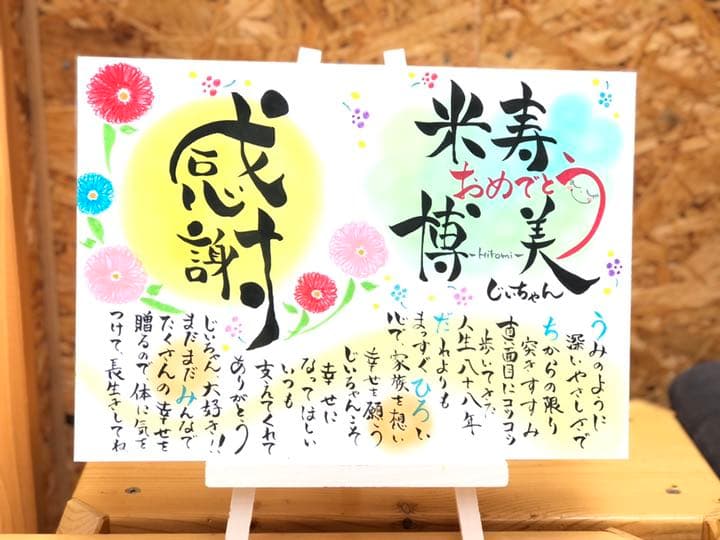 米寿
おめでとう
博美
-Hiromi-
じいちゃん
感謝
うみのように
深いやさしさで
ちからの限り
突きすすみ
真面目にコツコツ
歩いてきた
人生八十八年
だれよりも
まっすぐひろい
心で家族を想い
幸せを願う
じいちゃんこそ
幸せに
なってほしい
いつも
支えてくれて
ありがとう
じいちゃん、大好き!!
まだまだみんなで
たくさんの幸せを
贈るので、体に気を
つけて、長生きしてね